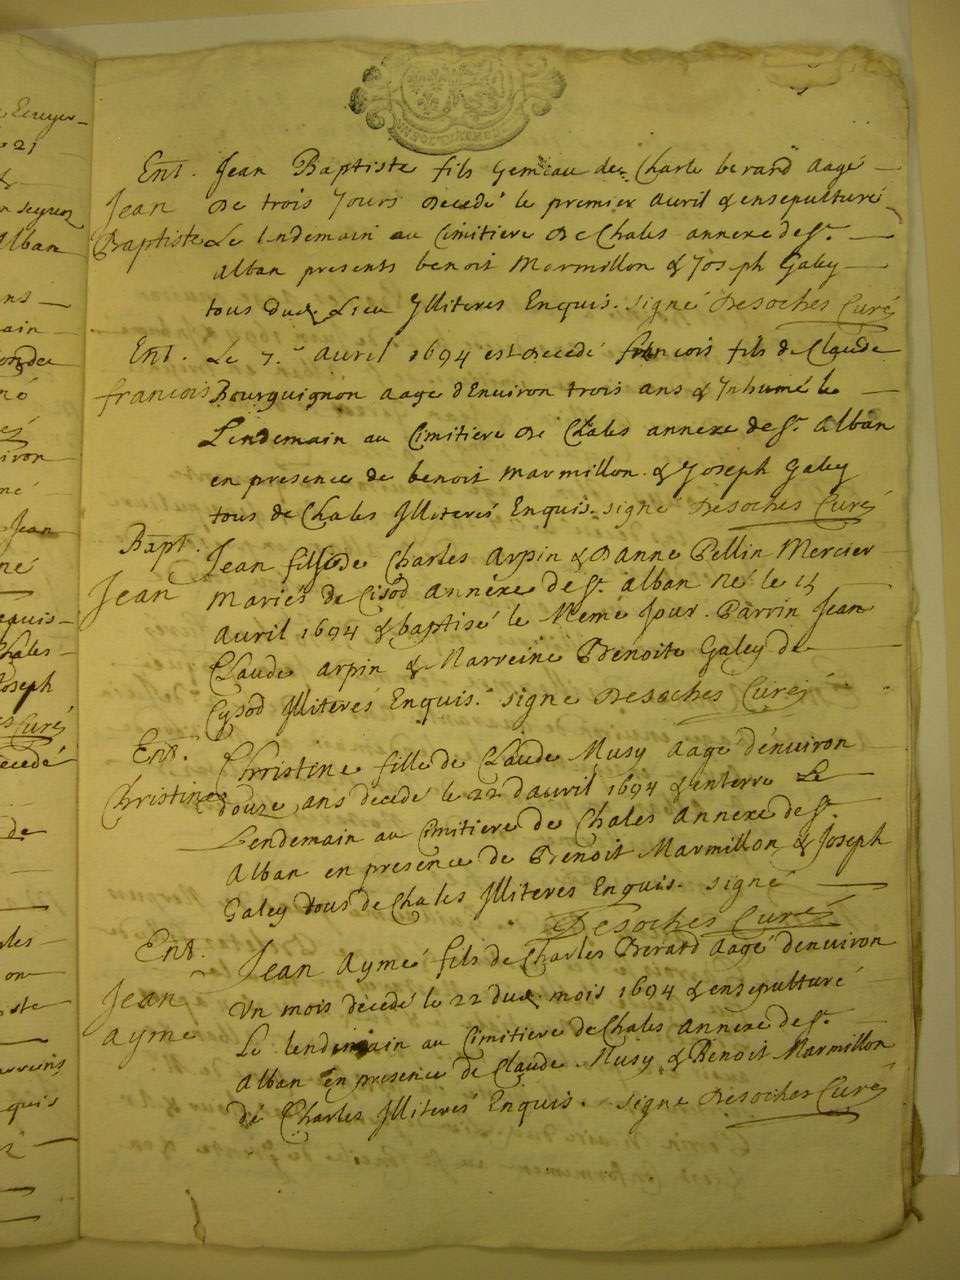 Ent. Jean Baptiste fils Gemeau de Charle berard aagé
Jean de trois Jours decedé le premier auril & ensepulturé
Baptiste Le lendemain au Cimitiere de Chales annexe de St.
alban presents benoit Marmillon & Joseph Galey
tous dud. Lieu Jlliteres Enquis. signé Desoches Curé
Ent. Le 7.e auril 1694 est decedé francois fils de Claude
francois Bourguignon aagé d'Enuiron trois ans & Inhumé le
Lendemain au Cimitiere de Chales annexe de St. alban
en presence de benoit marmillon. & Joseph Galey
tous de Chales Jlliterés Enquis. signé Desoches Curé
Bapt. Jean fils de Charles arpin & d'anne Pellin Mercier
Jean Mariés de Cisod annéxe de St. alban né le 15
auril 1694 & baptisé le Meme Jour. Parrin Jean
Claude arpin & Marreine Benoite Galey de
Cysod Jlliterés Enquis. signe Desoches Curé
Ent. Christine fille de Claude Musy aagé d'enuiron
Christine douze ans decedé le 22 d'auril 1694 & enterre Le
Lendemain au Cimitiere de Chales annexe de St.
alban en presence de Benoit Marmillon & Joseph
Galey tous de Chales Jlliteres Enquis. signé
Desoches Curé
Ent. Jean aymé fils de Charles Berard aagé d'enuiron
Jean Vn mois decedé le 22 dud. mois 1694 & ensepulturé
ayme Le lendemain au Cimitiere de Chales annexe de St.
alban en presence de Claude Musy & Benoit Marmillon
de Charles Jlliterés Enquis. signe Desoches Curé